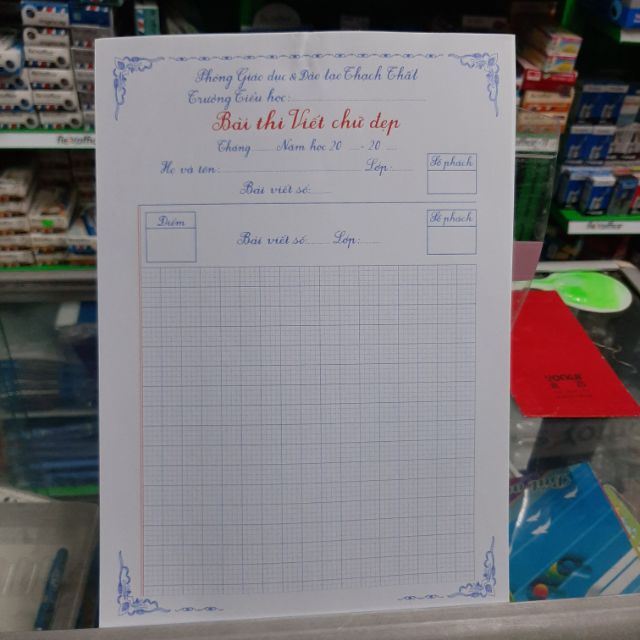 Phòng Giáo dục & Đào tạo Thạch Thất
Trường Tiểu học:
Bài thi Viết chữ đẹp
Tháng Năm học 20 - 20
Họ và tên: Lớp:
Số phách
Bài viết số:
Điểm
Bài viết số Lớp:
Số phách